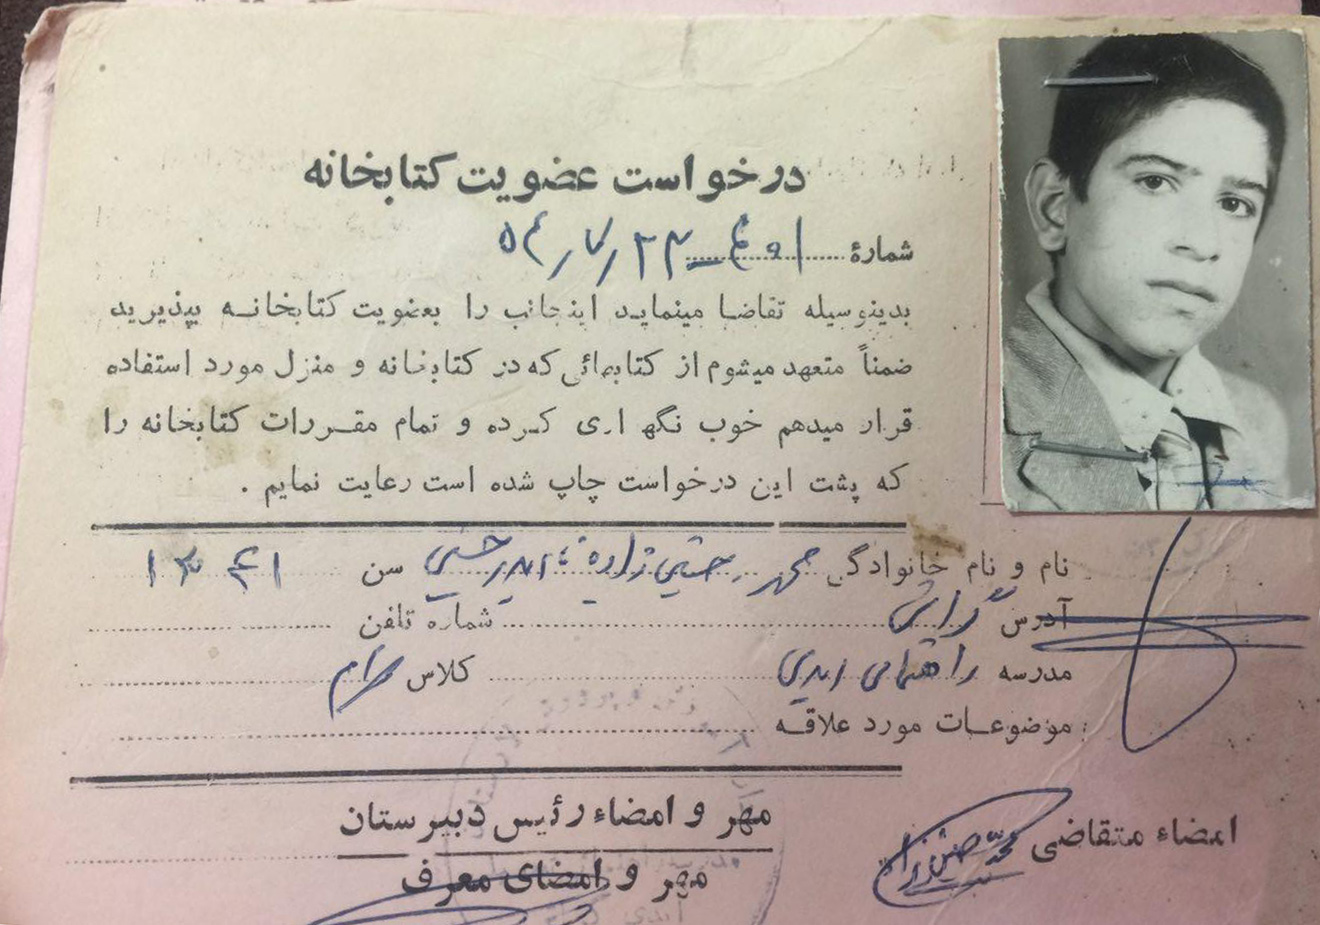 درخواست عضویت کتابخانه
شمارهٔ ۴۰۱ - ۲۳ / ۷ / ۵۴
بدینوسیله تقاضا مینماید اینجانب را بعضویت کتابخانه بپذیرید
ضمناً متعهد میشوم از کتابهائی که در کتابخانه و منزل مورد استفاده
قرار میدهم خوب نگهداری کرده و تمام مقررات کتابخانه را
که پشت این درخواست چاپ شده است رعایت نمایم .
نام و نام خانوادگی محمد حسنی زاده سن ۱۳۴۱
آدرس گراش شماره تلفن
مدرسه راهنمائی ابدی کلاس
موضوعات مورد علاقه
مهر و امضاء رئیس دبیرستان
امضاء متقاضی
مهر و امضای معرف